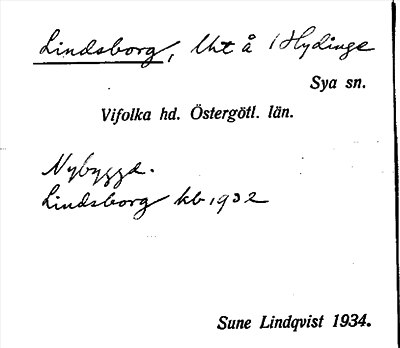 Lindsborg, Uht å 1 Hydinge
Sya sn.
Vifolka hd. Östergötl. län.
Nybygge.
Lindsborg kb 1932
Sune Lindqvist 1934.